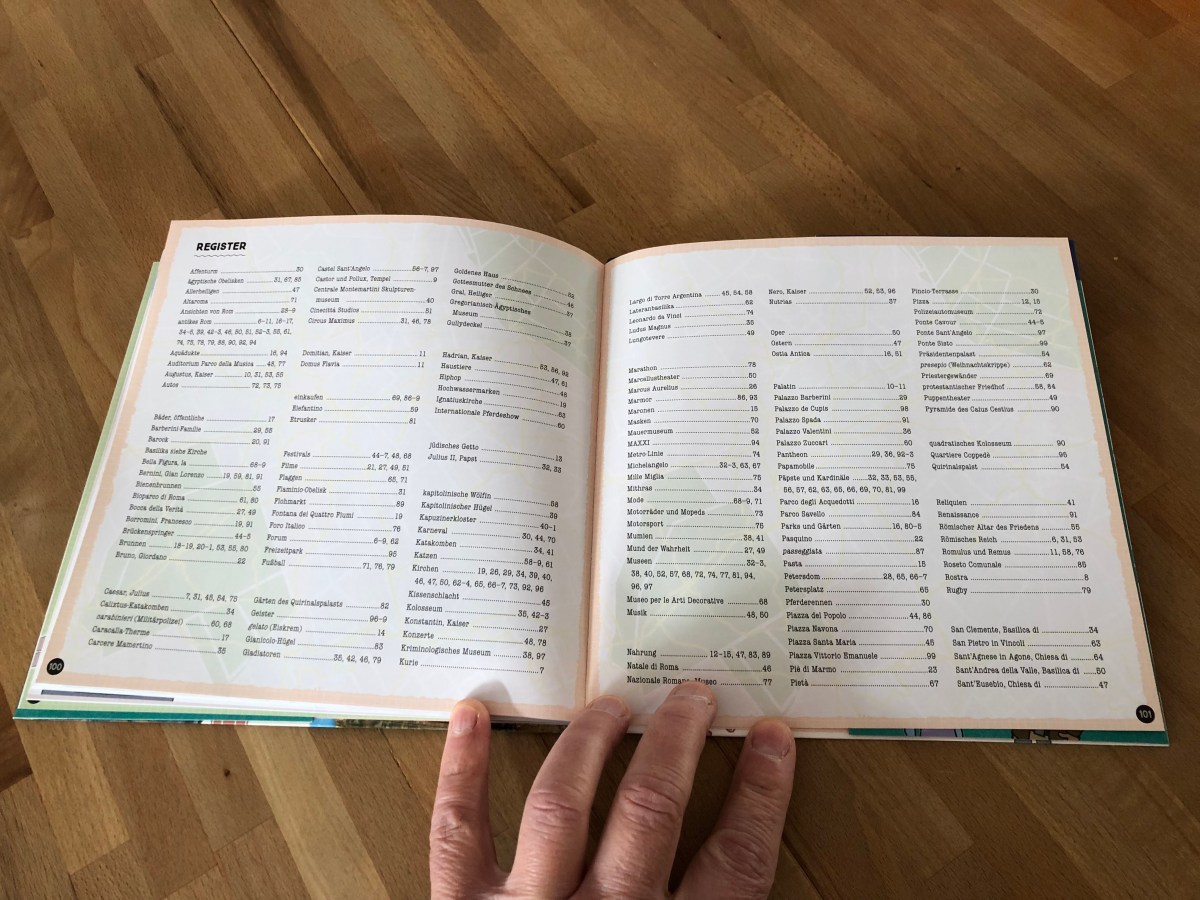 REGISTER
Affenturm 30
ägyptische Obelisken 31, 67, 85
Allerheiligen 47
Altaroma 71
Ansichten von Rom 28–9
antikes Rom 6–11, 16–17,
34–5, 39, 42–3, 46, 50, 51, 52–3, 55, 61,
74, 75, 78, 79, 88, 90, 92, 94
Aquädukte 16, 94
Auditorium Parco della Musica 48, 77
Augustus, Kaiser 10, 31, 53, 55
Autos 72, 73, 75
Bäder, öffentliche 17
Barberini-Familie 29, 55
Barock 20, 91
Basilika siehe Kirche
Bella Figura, la 68–9
Bernini, Gian Lorenzo 19, 59, 81, 91
Bienenbrunnen 55
Bioparco di Roma 61, 80
Bocca della Verità 27, 49
Borromini, Francesco 19, 91
Brückenspringer 44–5
Brunnen 18–19, 20–1, 53, 55, 80
Bruno, Giordano 22
Caesar, Julius 7, 31, 45, 54, 75
Calixtus-Katakomben 34
carabinieri (Militärpolizei) 60, 68
Caracalla-Therme 17
Carcere Mamertino 35
Castel Sant'Angelo 56–7, 97
Castor und Pollux, Tempel 9
Centrale Montemartini Skulpturen-
museum 40
Cinecittà Studios 51
Circus Maximus 31, 46, 78
Domitian, Kaiser 11
Domus Flavia 11
einkaufen 69, 86–9
Elefantino 59
Etrusker 61
Festivals 44–7, 48, 68
Filme 21, 27, 49, 51
Flaggen 65, 71
Flaminio-Obelisk 31
Flohmarkt 89
Fontana dei Quattro Fiumi 19
Foro Italico 76
Forum 6–9, 62
Freizeitpark 95
Fußball 71, 76, 79
Gärten des Quirinalspalasts 82
Geister 96–9
gelato (Eiskrem) 14
Gianicolo-Hügel 83
Gladiatoren 35, 42, 46, 79
Goldenes Haus 52
Gottesmutter des Schnees 46
Gral, Heiliger 37
Gregorianisch-Ägyptisches
Museum 38
Gullydeckel 37
Hadrian, Kaiser 53, 56, 92
Haustiere 47, 61
Hiphop 48
Hochwassermarken 19
Ignatiuskirche 63
Internationale Pferdeshow 60
jüdisches Getto 13
Julius II, Papst 32, 33
kapitolinische Wölfin 58
Kapitolinischer Hügel 39
Kapuzinerkloster 40–1
Karneval 30, 44, 70
Katakomben 34, 41
Katzen 58–9, 61
Kirchen 19, 26, 29, 34, 39, 40,
46, 47, 50, 62–4, 65, 66–7, 73, 92, 96
Kissenschlacht 45
Kolosseum 35, 42–3
Konstantin, Kaiser 27
Konzerte 48, 78
Kriminologisches Museum 38, 97
Kurie 7
100
Largo di Torre Argentina 45, 54, 58
Lateranbasilika 62
Leonardo da Vinci 74
Ludus Magnus 35
Lungotevere 49
Marathon 78
Marcellustheater 50
Marcus Aurelius 26
Marmor 86, 93
Maronen 15
Masken 70
Mauermuseum 52
MAXXI 94
Metro-Linie 74
Michelangelo 32–3, 63, 67
Mille Miglia 75
Mithras 34
Mode 68–9, 71
Motorräder und Mopeds 73
Motorsport 75
Mumien 38, 41
Mund der Wahrheit 27, 49
Museen 32–3,
38, 40, 52, 57, 68, 72, 74, 77, 81, 94,
96, 97
Museo per le Arti Decorative 68
Musik 48, 50
Nahrung 12–15, 47, 83, 89
Natale di Roma 46
Nazionale Romano Museo 77
Nero, Kaiser 52, 53, 96
Nutrias 37
Oper 50
Ostern 47
Ostia Antica 16, 51
Palatin 10–11
Palazzo Barberini 29
Palazzo de Cupis 98
Palazzo Spada 91
Palazzo Valentini 36
Palazzo Zuccari 60
Pantheon 29, 36, 92–3
Papamobile 75
Päpste und Kardinäle 32, 33, 53, 55,
56, 57, 62, 63, 65, 66, 69, 70, 81, 99
Parco degli Acquedotti 16
Parco Savello 84
Parks und Gärten 16, 80–5
Pasquino 22
passeggiata 87
Pasta 15
Petersdom 28, 65, 66–7
Petersplatz 65
Pferderennen 30
Piazza del Popolo 44, 86
Piazza Navona 70
Piazza Santa Maria 46
Piazza Vittorio Emanuele 99
Piè di Marmo 23
Pietà 67
Pincio-Terrasse 30
Pizza 12, 15
Polizeiautomuseum 72
Ponte Cavour 44–5
Ponte Sant'Angelo 97
Ponte Sisto 99
Präsidentenpalast 54
presepio (Weihnachtskrippe) 62
Priestergewänder 69
protestantischer Friedhof 58, 84
Puppentheater 49
Pyramide des Caius Cestius 90
quadratisches Kolosseum 90
Quartiere Coppedè 95
Quirinalspalst 54
Reliquien 41
Renaissance 91
Römischer Altar des Friedens 55
Römisches Reich 6, 31, 53
Romulus und Remus 11, 58, 76
Roseto Comunale 85
Rostra 8
Rugby 79
San Clemente, Basilica di 34
San Pietro in Vincoli 63
Sant'Agnese in Agone, Chiesa di 64
Sant'Andrea della Valle, Basilica di 50
Sant'Eusebio, Chiesa di 47
101